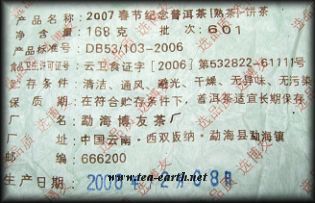 产品名称：2007 春节纪念普洱茶[熟茶]饼茶
净 含 量：168 克 批次：601
产品标准号：DB53/103-2006
食品卫生许可证号：云卫食证字[2006]第532822-61111号
贮存条件：清洁、通风、避光、干燥、无异味、无污染
保 质 期：在符合贮存条件下，普洱茶适宜长期保存
厂 名：勐海博友茶厂
厂 址：中国云南·西双版纳·勐海县勐海镇
邮 编：666200
www.tea-earth.net
生产日期：2006年12月08日
选博友